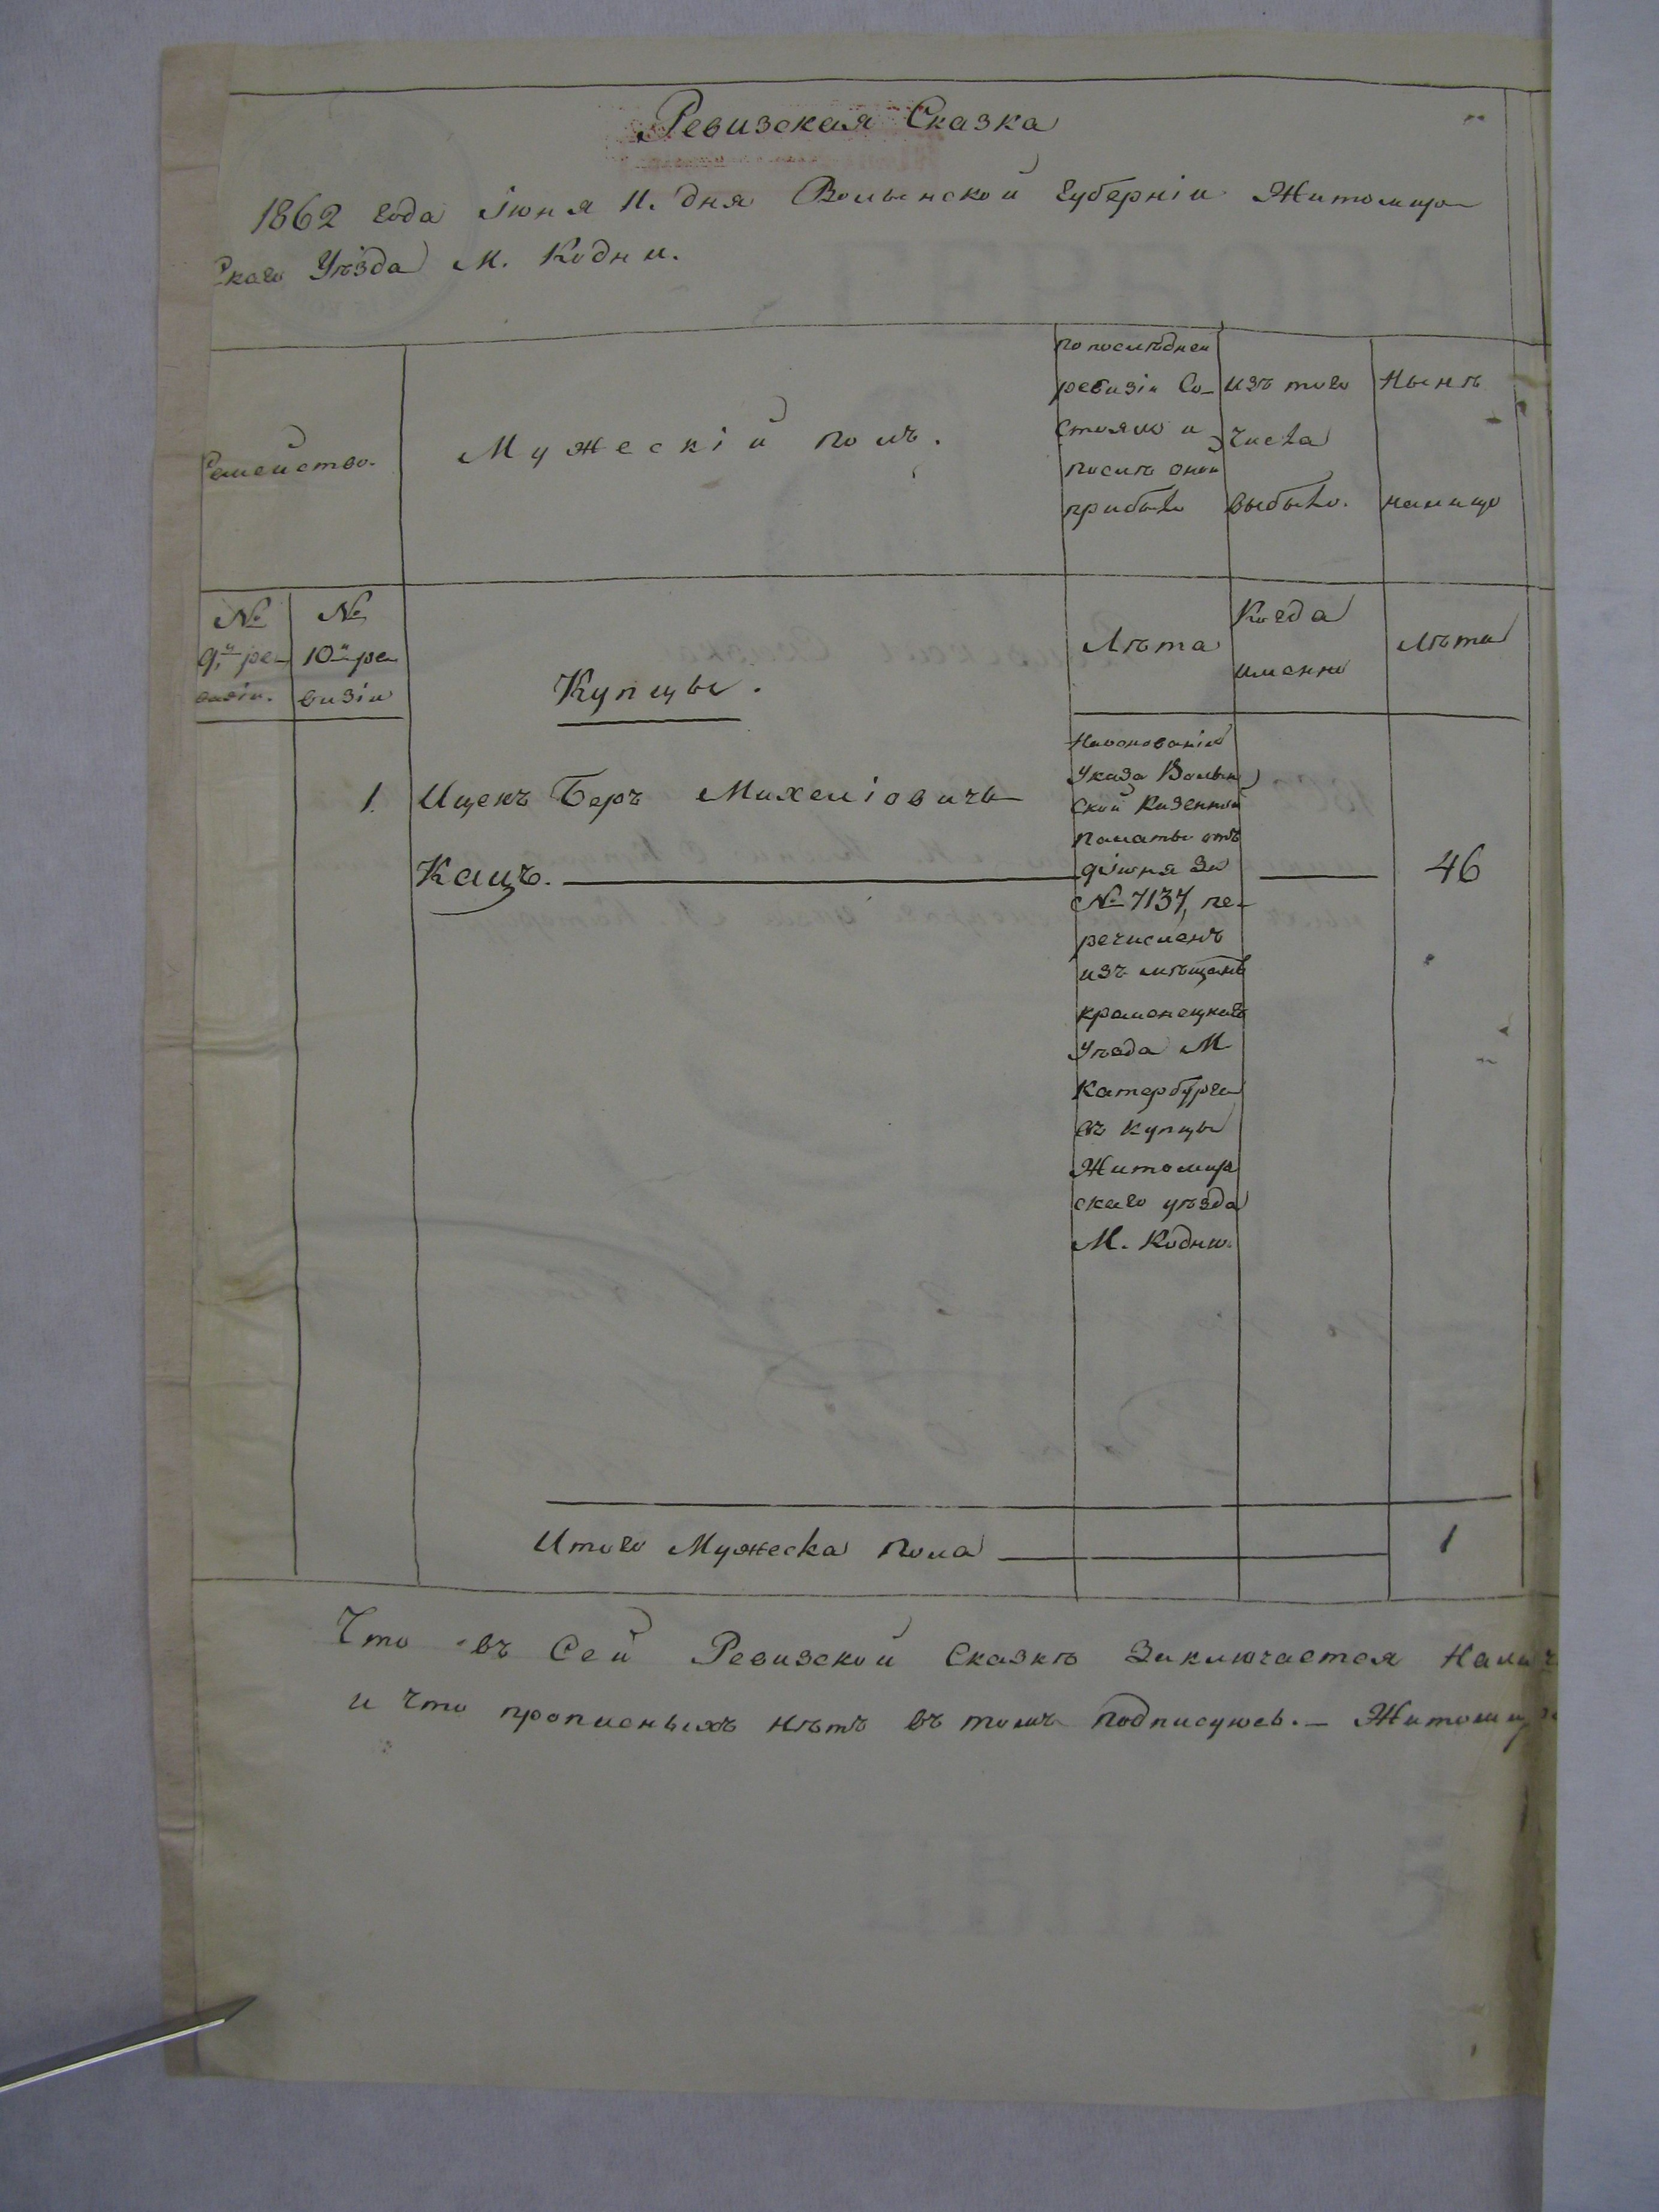 Ревизская Сказка
1862 года Іюня 11. дня Волынской Губерніи Житомир-
скаго Уѣзда М. Кодни.
Семейство.
Мужескій полъ.
по послѣдней
ревизіи Со-
стояло и
послѣ оной
прибыло
изъ того
числа
выбыло.
Нынѣ
налицо
№
9.й ре-
визіи.
№
10й ре-
визіи
Купцы.
Лѣта
Когда
именно
Лѣта
1. Ицекъ Беръ Михеліовичъ
Кацъ.
46
На основаніи
Указа Волын
ской Казенной
Палаты отъ
9 Іюня за
№ 7137, пе-
речисленъ
изъ мѣщанъ
кременецкаго
Уѣзда М
Катербурга
въ купцы
Житомир
скаго уѣзда
М. Кодню.
Итого Мужеска пола 1
Что въ Сей Ревизской Сказкѣ Заключается
и что прописныхъ нѣтъ въ томъ подписуюсь.-